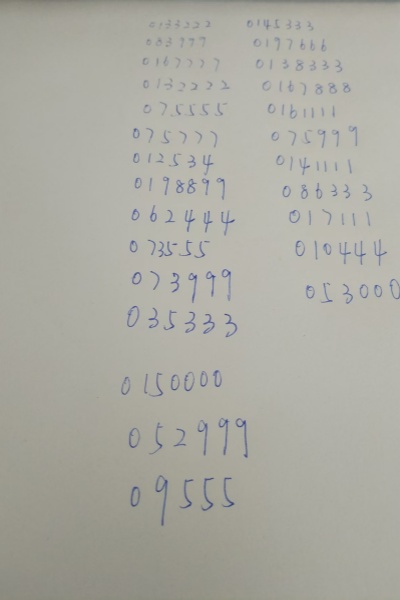 0133222 0145333
083999 0197666
0167777 0138333
0132222 0167888
075555 0161111
075777 075999
012534 0141111
0198899 086333
062444 017111
073555 010444
073999 053000
035333
0150000
052999
09555